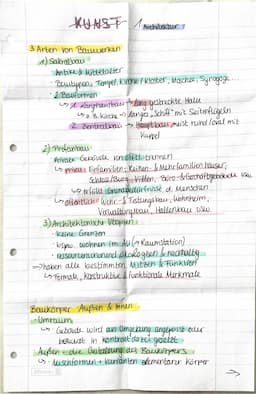 KUNST - 1 Architektur
3 Arten von Bauwerken
1) Sakralbau
Antike & Mittelalter
Bautypen: Tempel, Kirche / Kloster, Moschee, Synagoge
2 Bauformen
↳ 1. Longitudinalbau → lang gestreckte Halle
↳ z.B. Kirche → langes "Schiff" mit Seitenflügeln
2. Zentralbau → Hauptbau meist rund / oval mit
Kuppel
2) Profanbau
Antike: Gebäude
↳ privat: Einfamilien- & Mehrfamilienhäuser,
Schloss / Burg, Villen, Büro- & Geschäftsgebäude usw.
↳ erfüllt Grundbedürfnisse d. Menschen
↳ öffentlich: Wehr- & Festungsbau, Wohnheim,
Verwaltungsbau, Hallenbau usw.
3) Architektonische Utopien
- keine Grenzen
- bspw. wohnen im All (→ Raumstation)
- ressourcenschonend, ökologisch & nachhaltig
→ haben alle bestimmten Nutzen & Funktion
↳ formale, konstruktive & funktionale Merkmale
Baukörper Außen & Innen
- Umraum
↳ Gebäude wird an Umgebung angepasst oder
bewusst in Kontrast dazu gesetzt
Außen → die Gestaltung des Baukörpers
↳ Mischformen & Varianten elementarer Körper
→